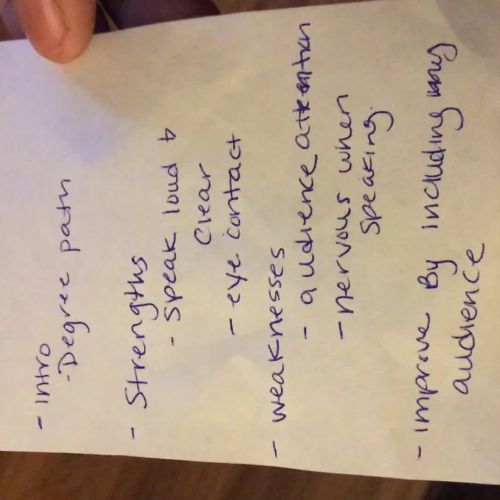 - Intro
- Degree path
- Strengths
- Speak loud &
Clear
- eye contact
- weaknesses
- audience attention
- nervous when
speaking.
- improve By including my
audience